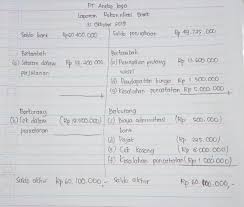 PT Andro Jaya
Laporan Rekonsiliasi Bank
31 Oktober 2019
Saldo bank Rp 60.400.000
Saldo perusahaan Rp 49.725.000
Bertambah
(a) Setoran dalam perjalanan
Bertambah
(b) Penagihan piutang wesel
(f) Pendapatan bunga Rp 1.000.000
(g) Kesalahan pencatatan
Berkurang
(h) Cek dalam peredaran
Berkurang
(c) Biaya administrasi bank (Rp 500.000)
(d) Pajak
(e) Cek kosong
(f) Kesalahan pencatatan (Rp 1.000.000)
Saldo akhir Rp 60.100.000,-
Saldo akhir Rp 60.100.000,-